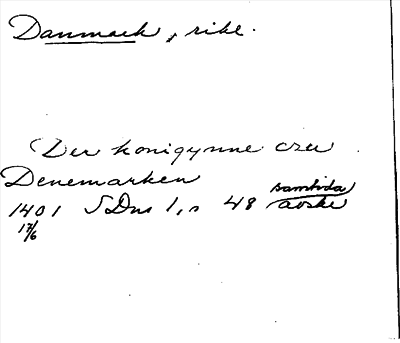 Danmark, rike.
Der konigynne czu
Denemarken
1401 SDns 1, n 48 samtida
17/6 avskr